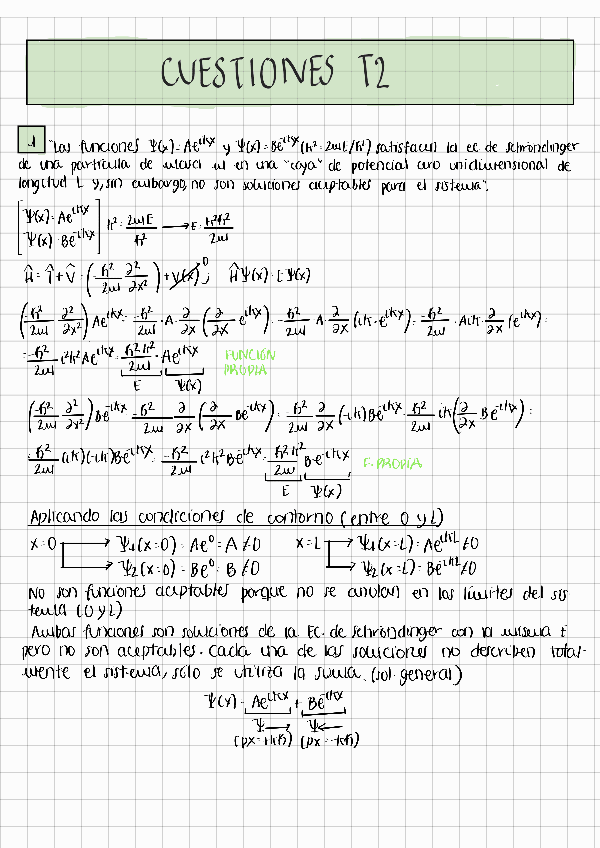 CUESTIONES T2
1 "Las funciones Ψ(x)=Ae^ikx y Ψ(x)=Be^-ikx (k²=2mE/ħ²) satisfacen la ec de Schrödinger
de una partícula de masa m en una "caja" de potencial cero unidimensional de
longitud L y, sin embargo, no son soluciones aceptables para el sistema".
[Ψ(x)=Ae^ikx
Ψ(x)=Be^-ikx] k²=2mE/ħ² → E=ħ²k²/2m
Ĥ=T̂+V̂=(-ħ²/2m ∂²/∂x²)+V(x)^0; ĤΨ(x)=EΨ(x)
(-ħ²/2m ∂²/∂x²)Ae^ikx=-ħ²/2m·A·∂/∂x(∂/∂x e^ikx)=-ħ²/2m A·∂/∂x(ik·e^ikx)=-ħ²/2m·Aik·∂/∂x(e^ikx)=
=-ħ²/2m i²k²Ae^ikx=ħ²k²/2m·Ae^ikx FUNCIÓN
PROPIA
E Ψ(x)
(-ħ²/2m ∂²/∂x²)Be^-ikx=-ħ²/2m ∂/∂x(∂/∂x Be^-ikx)=-ħ²/2m ∂/∂x(-ik)Be^-ikx=ħ²/2m ik(∂/∂x Be^-ikx)=
=ħ²/2m(ik)(-ik)Be^-ikx=-ħ²/2m i²k²Be^-ikx=ħ²k²/2m Be^-ikx F. PROPIA
E Ψ(x)
Aplicando las condiciones de contorno (entre 0 y L)
x=0 → Ψ1(x=0)=Ae^0=A≠0 x=L → Ψ1(x=L)=Ae^ikL≠0
→ Ψ2(x=0)=Be^0=B≠0 → Ψ2(x=L)=Be^-ikL≠0
No son funciones aceptables porque no se anulan en los límites del sis
tema (0 y L)
Ambas funciones son soluciones de la Ec. de Schröndinger con la misma E
pero no son aceptables. Cada una de las soluciones no describen total-
mente el sistema, sólo se utiliza la suma. (sol. general)
Ψ(x)=Ae^ikx+Be^-ikx
Ψ→ Ψ←
(px=+kħ) (px=-kħ)